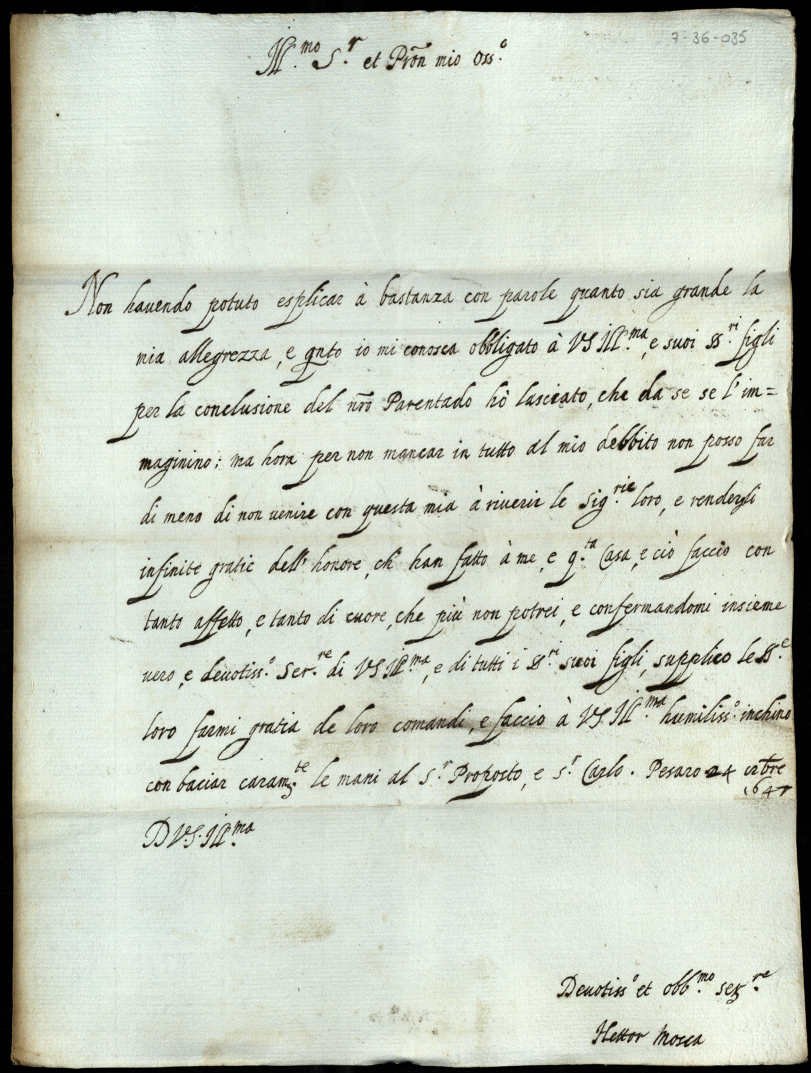 7-36-035
Ill.mo S.r et Prõn mio Oss.o
Non havendo potuto esplicar à bastanza con parole quanto sia grande la
mia allegrezza, e qnto io mi conosca obbligato à VS Ill.ma, e suoi SS.ri figli
per la conclusione del nrõ Parentado hò lasciato, che da se se l'im=
maginino; ma hora per non mancar in tutto al mio debbito non posso far
di meno di non venire con questa mia à riverir le Sig.rie loro, e rendergli
infinite gratie dell'honore, ch' han fatto à me, e q.ta Casa, e ciò faccio con
tanto affetto, e tanto di cuore, che più non potrei, e confermandomi insieme
vero, e devotiss.o Ser.re di VS Ill.ma, e di tutti i SS.ri suoi figli, supplico le SS.e
loro farmi gratia de loro comandi, e faccio à VS Ill.ma humiliss.o inchino
con baciar caram.te le mani al S.r Proposto, e S.r Carlo. Pesaro 24
164
D V.S. Ill.ma
Devotiss.o et obb.mo ser.re
Hettor Mosca